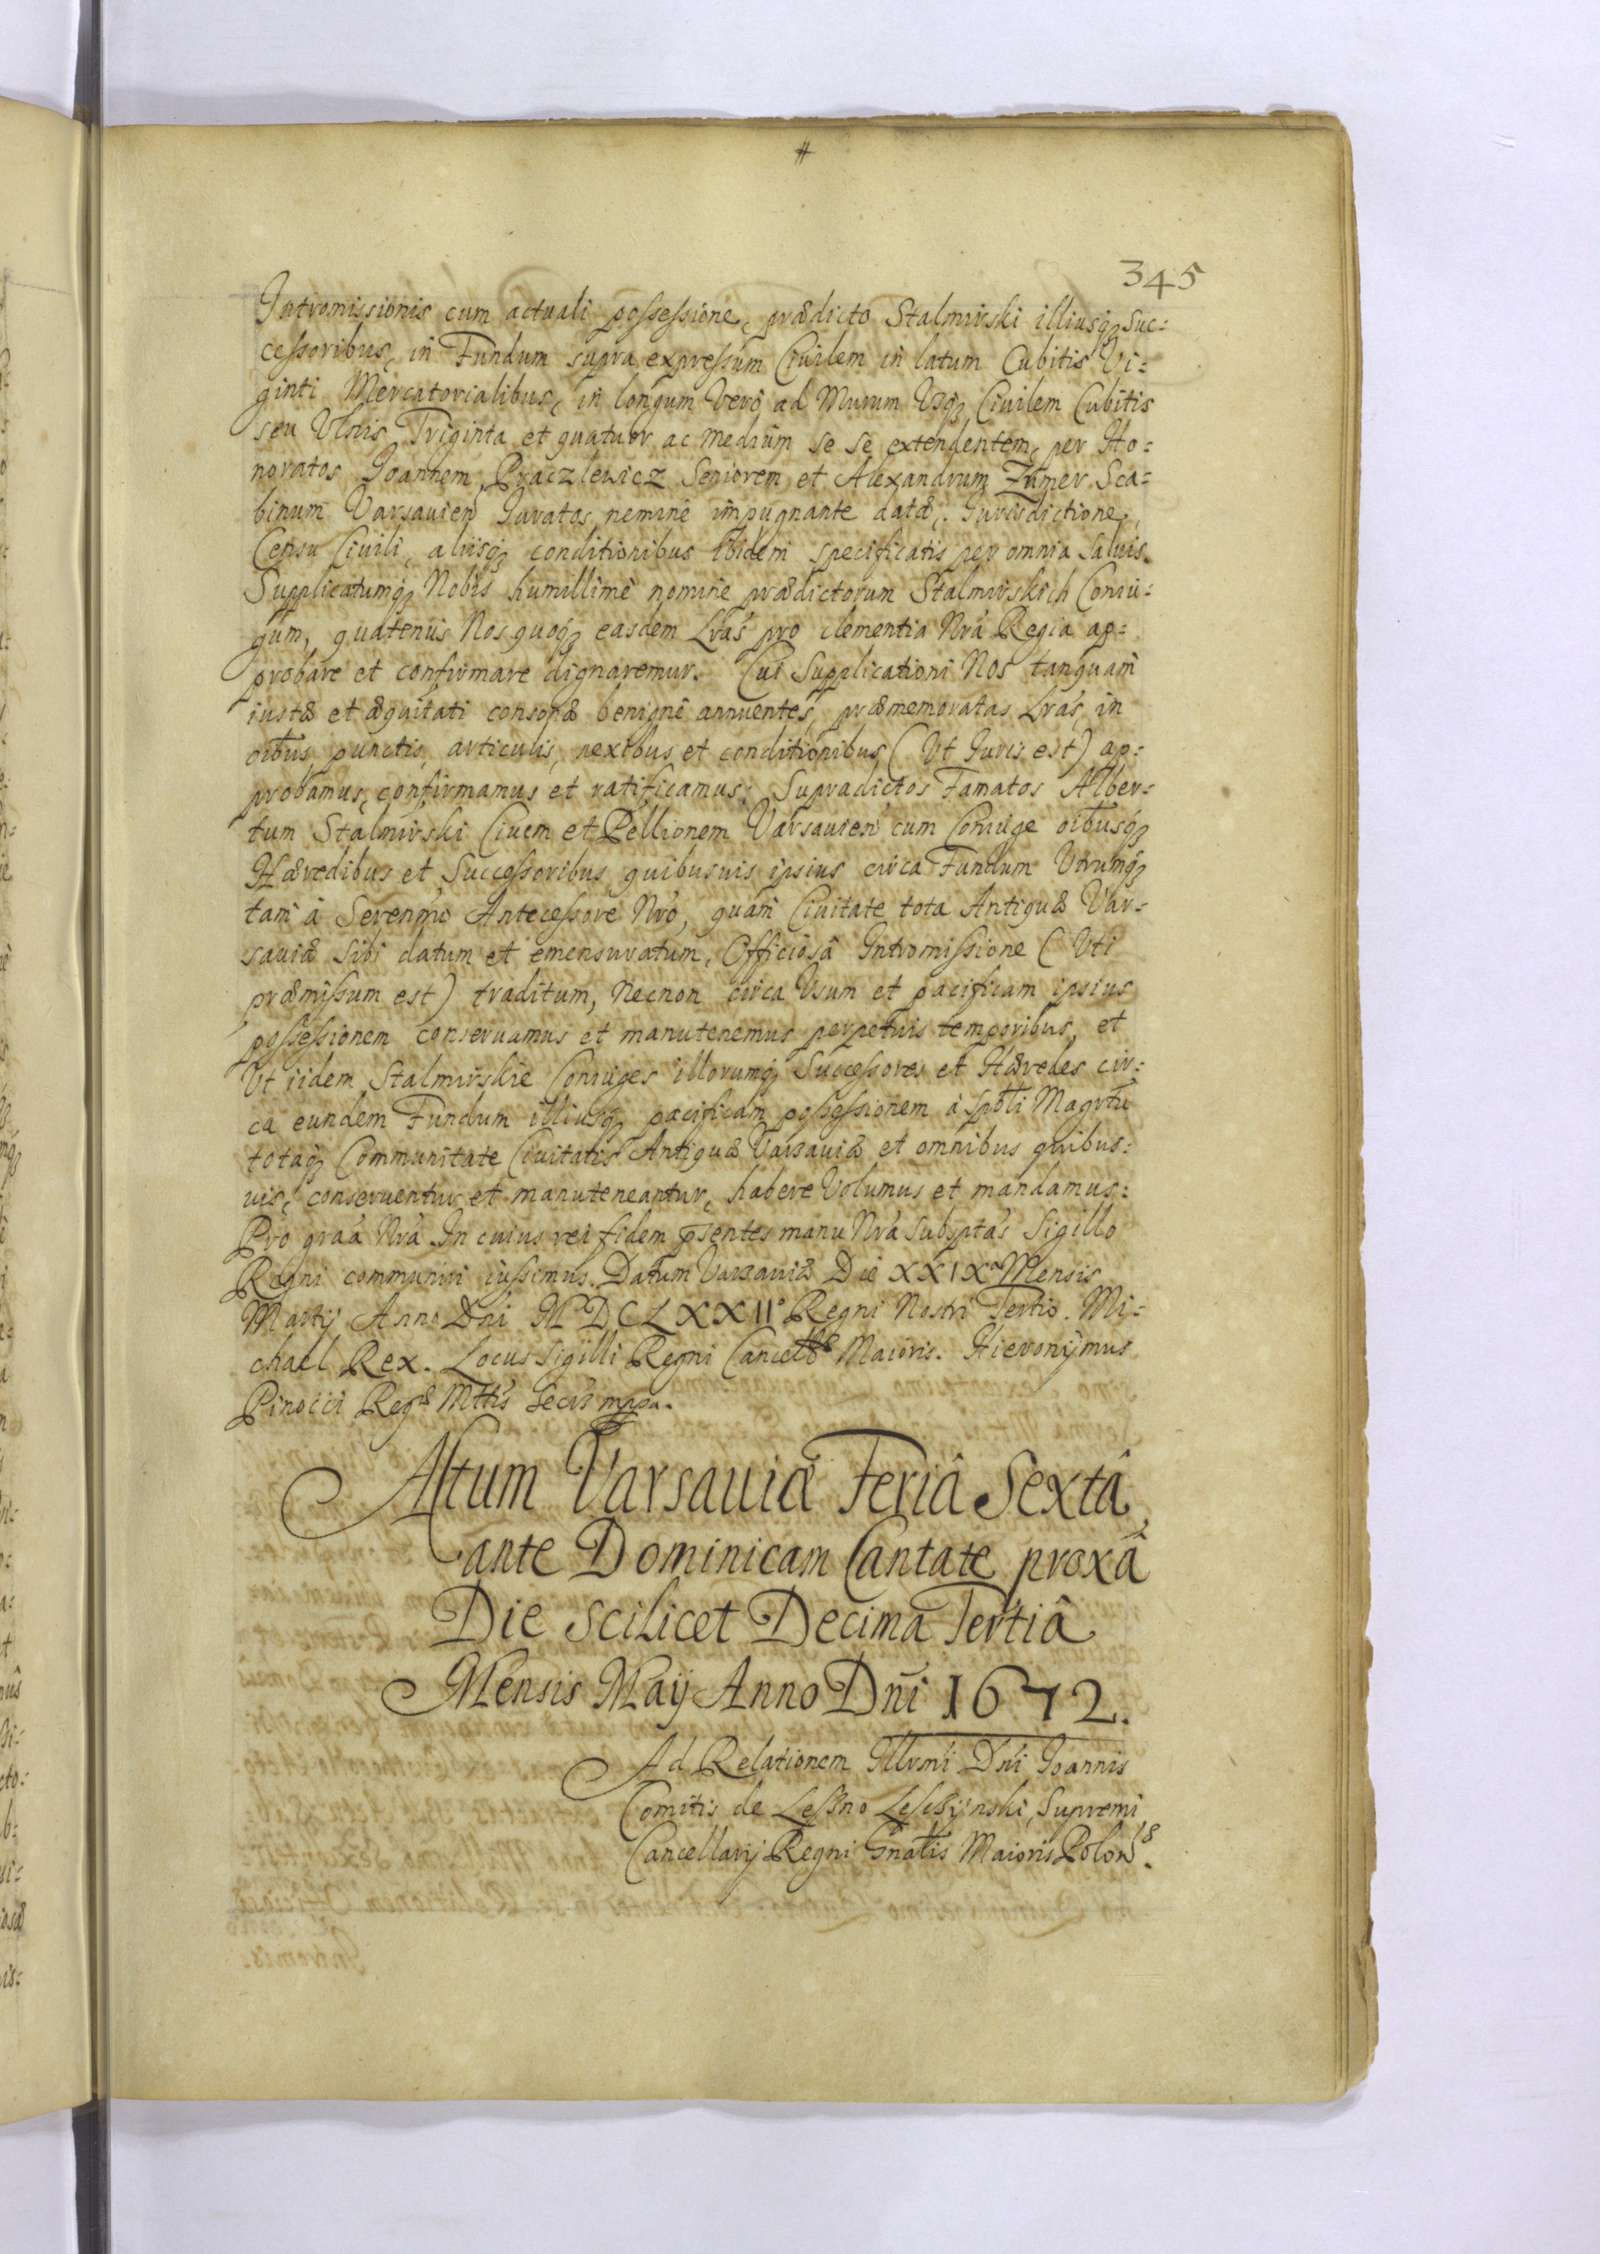 #
345
Intromissionis cum actuali possessione, prædicto Stalmirski illiusq́; Suc-
cessoribus, in Fundum supra expressum Ciuilem in latum Cubitis Vi-
ginti Mercatorialibus, in longum verò ad Murum Vsq́; Ciuilem Cubitis
seu Vlnis Triginta et quatuor ac medium se se extendentem, per Ho-
noratos Joannem Praczlewicz Seniorem et Alexandrum Zumer Sca-
binum Varsauien̄ Juratos nemine impugnante datæ. Jurisdictione,
Censu Ciuili, alijsq́; conditionibus Ibidem specificatis per omnia saluis.
Supplicatumq́; Nobis humillimè nomine prædictorum Stalmirskich Coniu-
gum, quatenus Nos quoq́; easdem Lrãs pro clementia Nrã Regia ap-
probare et confirmare dignaremur. Cui Supplicationi Nos tanquam
iustæ et æquitati consonæ benignè annuentes, præmemoratas Lrãs in
oĩbus punctis, articulis, nexibus et conditionibus (Vt Juris est) ap-
probamus, confirmamus et ratificamus; Supradictos Famatos Alber-
tum Stalmirski Ciuem et Pellionem Varsauien̄ cum Coniuge oĩbusq́;
Hæredibus et Successoribus quibusuis ipsius circa Fundum Utrumq́;
tam à Serenm̃o Antecessore Nrõ, quàm Ciuitate tota Antiquæ Var-
sauiæ sibi datum et emensuratum, Officiosâ Intromissione (Vti
præmissum est) traditum, Necnon circa Vsum et pacificam ipsius
possessionem conseruamus et manutenemus perpetuis temporibus, et
Vt iidem Stalmirskie Coniuges illorumq́; Successores et Hæredes cir-
ca eundem Fundum illiusq́; pacificam possessionem à Spbli Magrtũ
totaq́; Communitate Ciuitatis Antiquæ Varsauiæ et omnibus quibus-
uis, conseruentur et manuteneantur, habere Volumus et mandamus:
Pro graã Nrã In cuius rei fidem p̃sentes manu Nrã Subsptãs Sigillo
Regni communiri iussimus. Datum Varsauiæ Die XXIXᵃ Mensis
Martij Anno Dn̄i MDCLXXII° Regni Nostri Tertio. Mi-
chael Rex. Locus Sigilli Regni Cancellæ Maioris. Hieronymus
Pinocci Regæ Mttis Secrs mppa.
Actum Varsauiæ Feriâ Sextâ,
ante Dominicam Cantate proxã
Die Scilicet Decima Tertiâ
Mensis Maij Anno Dn̄i 1672.
Ad Relationem Illvmi Dn̄i Joannis
Comitis de Leszno Lesczÿnski, Supremi
Cancellarij Regni Gnalis Maioris Polon̄iæ.